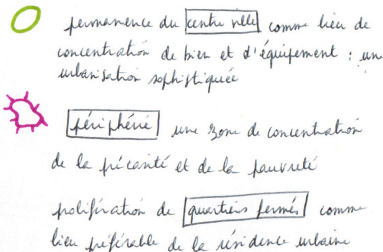 permanence du centre ville comme lieu de
concentration de bien et d'équipement : un
urbanisation sophistiquée
périphérie une zone de concentration
de la précarité et de la pauvreté
polifération de quartiers fermés comme
lieu préférable de la résidence urbaine